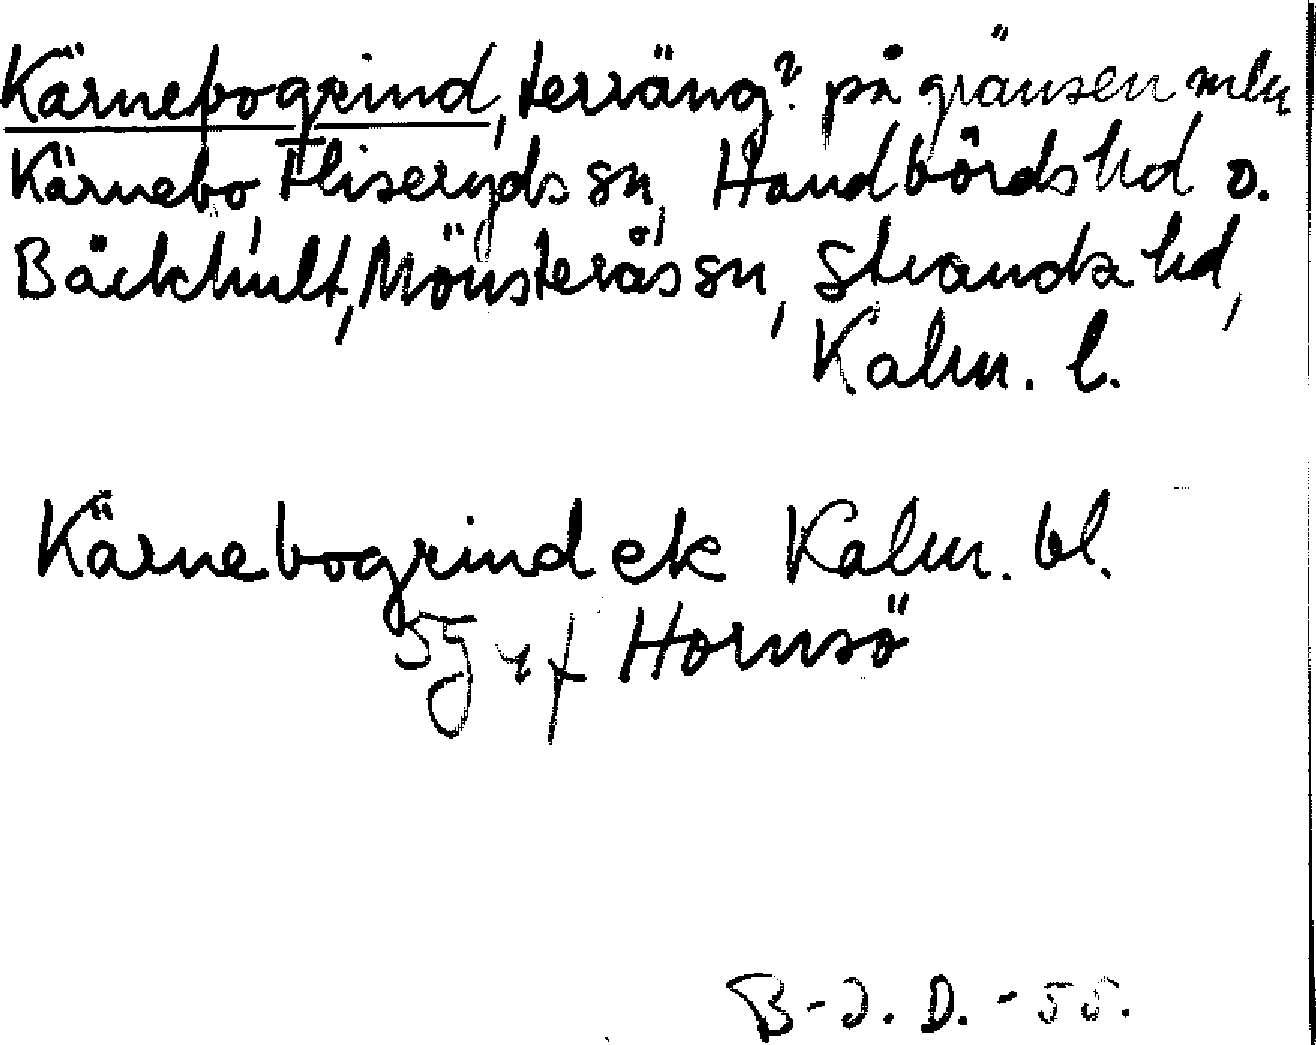 Kärnebogrind, terräng? på gränsen mln
Kärnebo, Fliseryds sn, Handbörds hd o.
Bäckhult, Mönsterås sn, Stranda hd,
Kalm. l.
Kärnebogrind ek Kalm. bl.
Hornsö
B-J. D. - 55.